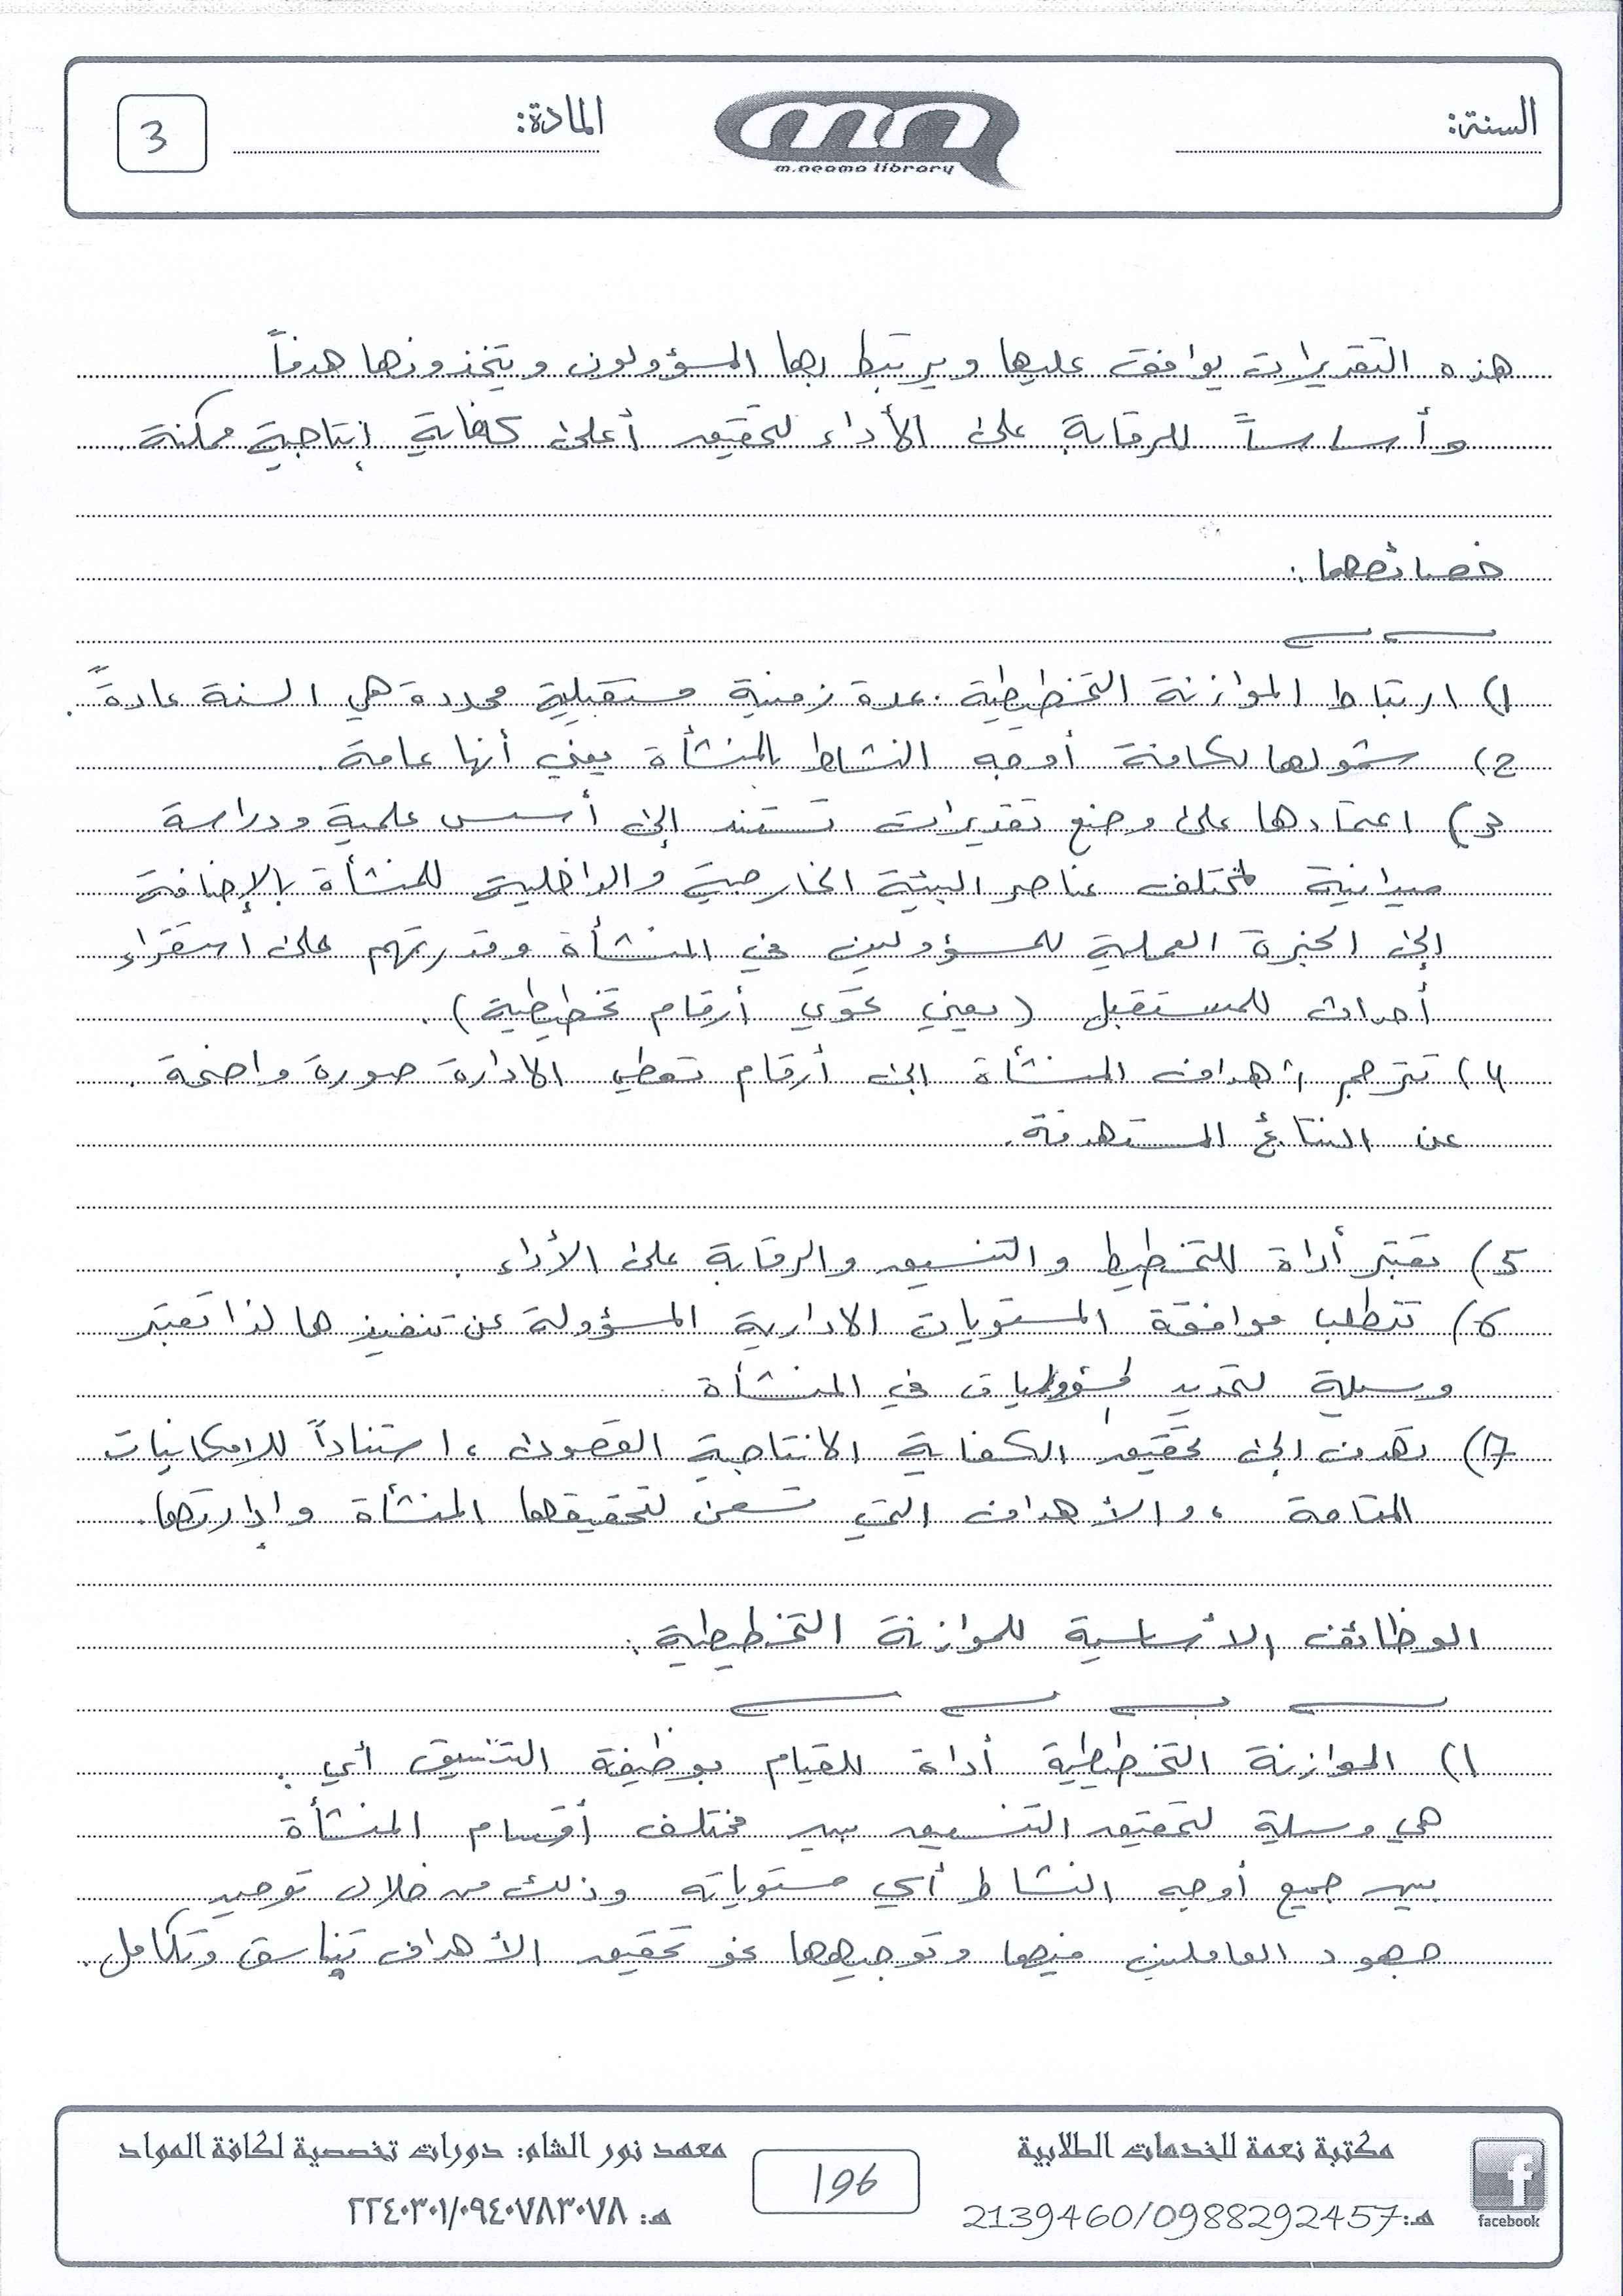 السنة:
m.neama library
المادة:
3
هذه التقديرات يوافق عليها ويرتبط بها المسؤولون ويتخذونها هدفاً
وأساساً للرقابة على الأداء لتحقيق أعلى كفاية إنتاجية ممكنة.
خصائصها:
1) ارتباط الموازنة التخطيطية بمدة زمنية مستقبلية محددة هي السنة عادةً.
2) شمولها لكافة أوجه النشاط بالمنشأة يعني أنها عامة.
3) اعتمادها على وضع تقديرات تستند إلى أسس علمية ودراسة
ميدانية لمختلف عناصر البيئة الخارجية والداخلية للمنشأة بالإضافة
إلى الخبرة العملية للمسؤولين في المنشأة وقدرتهم على استقراء
أحداث للمستقبل (يعني تحوي أرقام تخطيطية).
4) تترجم أهداف المنشأة إلى أرقام تعطي الادارة صورة واضحة.
عن النتائج المستهدفة.
5) تعتبر أداة للتخطيط والتنسيق والرقابة على الأداء.
6) تتطلب موافقة المستويات الادارية المسؤولة عن تنفيذها لذا تعتبر
وسيلة لتحديد المسؤوليات في المنشأة
7) تهدف إلى تحقيق الكفاية الانتاجية القصوى، استناداً للإمكانيات
المتاحة، والأهداف التي تسعى لتحقيقها المنشأة وإدارتها.
الوظائف الأساسية للموازنة التخطيطية:
1) الموازنة التخطيطية أداة للقيام بوظيفة التنسيق أي:
هي وسيلة لتحقيق التنسيق بين مختلف أقسام المنشأة
بين جميع أوجه النشاط أي مستوياته وذلك من خلال توحيد
جهود العاملين فيها وتوجيهها نحو تحقيق الأهداف بتناسق وتكامل.
facebook
مكتبة نعمة للخدمات الطلابية
هـ: 2139460/0988292457
196
معهد نور الشام: دورات تخصصية لكافة المواد
هـ: ٢٢٤٠٣٠١/٠٩٤٠٧٨٣٠٧٨